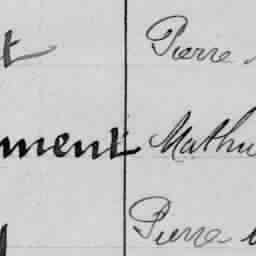 t Pierre
ment Mathu
Pierre